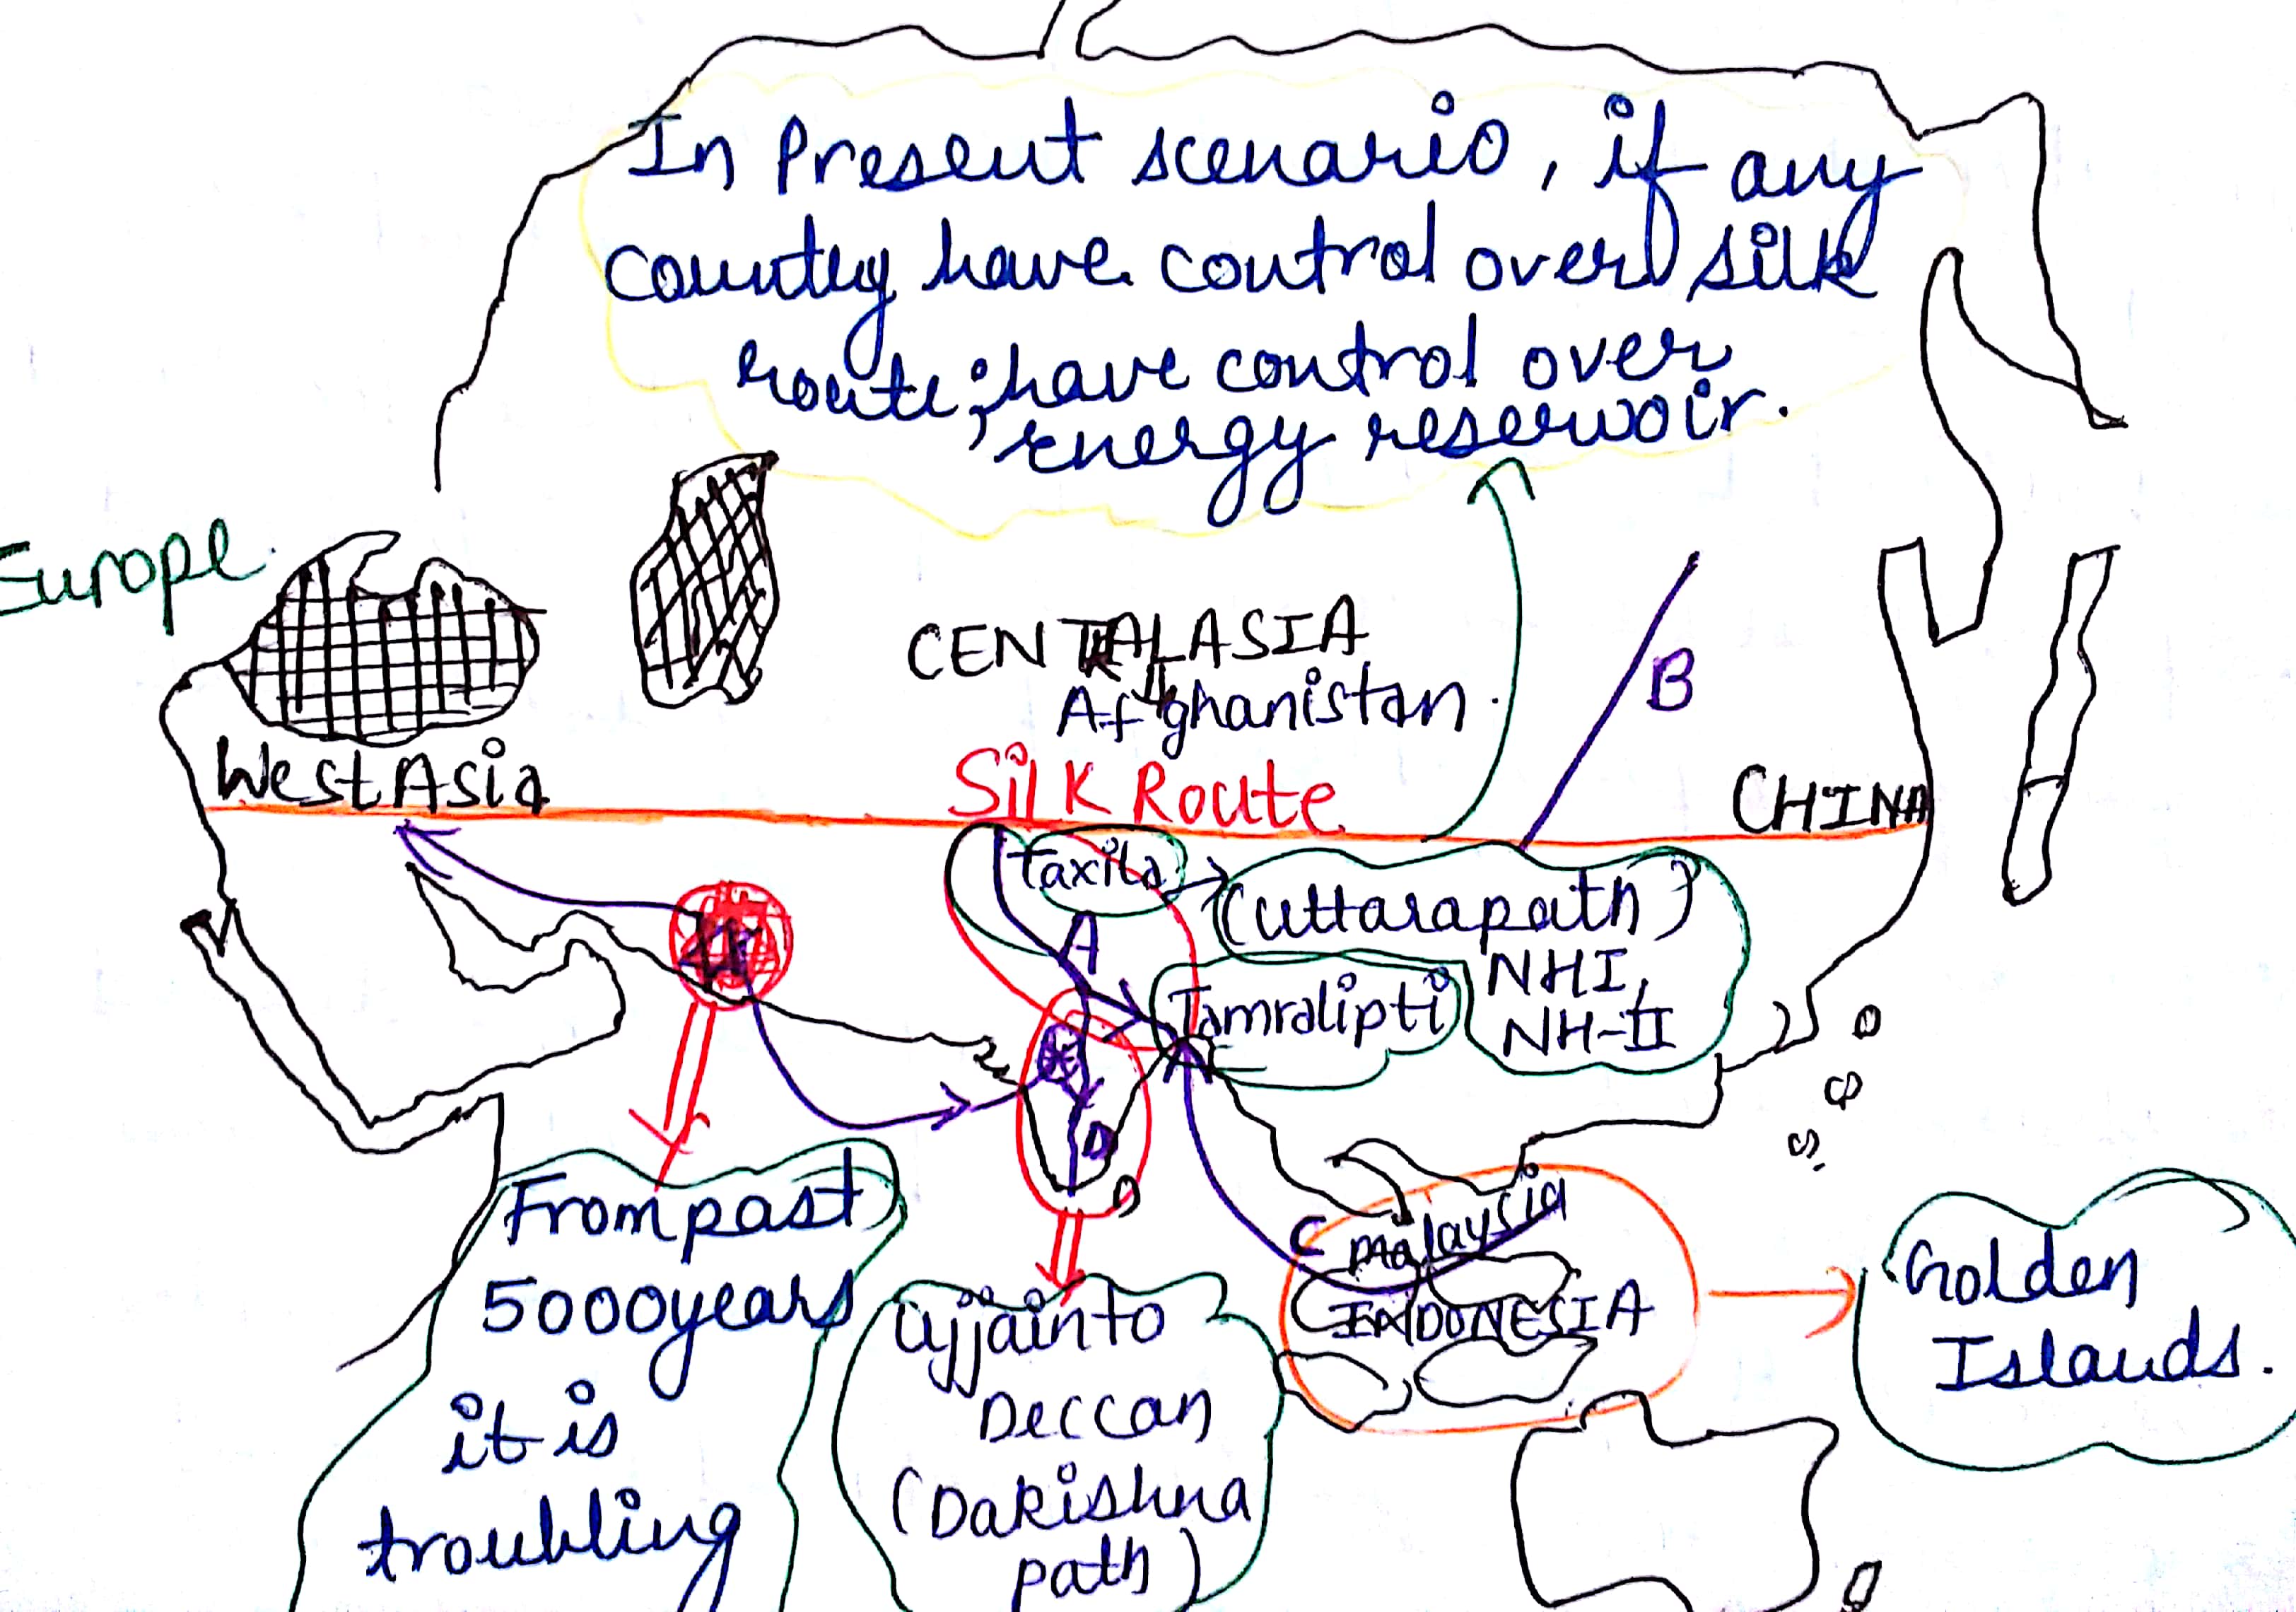 In Present scenario, if any
country have control over silk
route; have control over
energy reservoir.
Europe
CENTRALASIA
Afghanistan.
B
West Asia
Silk Route
CHINA
taxila
(uttarapath)
A
NHI,
NH-II
Tamralipti
D
From past
5000years
it is
troubling
C
malaysia
INDONESIA
Golden
Islands.
ujjain to
Deccan
(Dakishna
path)